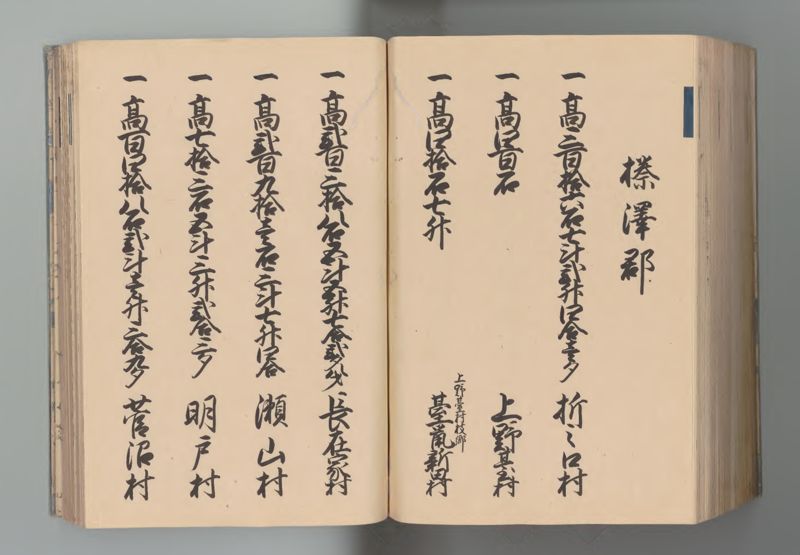 榛澤郡
一高三百拾六石七斗弐升四合壱夕 折之口村
一高四百石 上野臺村
上野臺村枝郷
一高四拾石七升 臺鼠新田村
一高弐百三拾八石五斗五升七合弐夕 長在家村
一高弐百九拾壱石三斗七升四合 瀬山村
一高七拾三石五斗三升弐合三夕 明戸村
一高百四拾八石弐斗壱升三合九夕 菅沼村